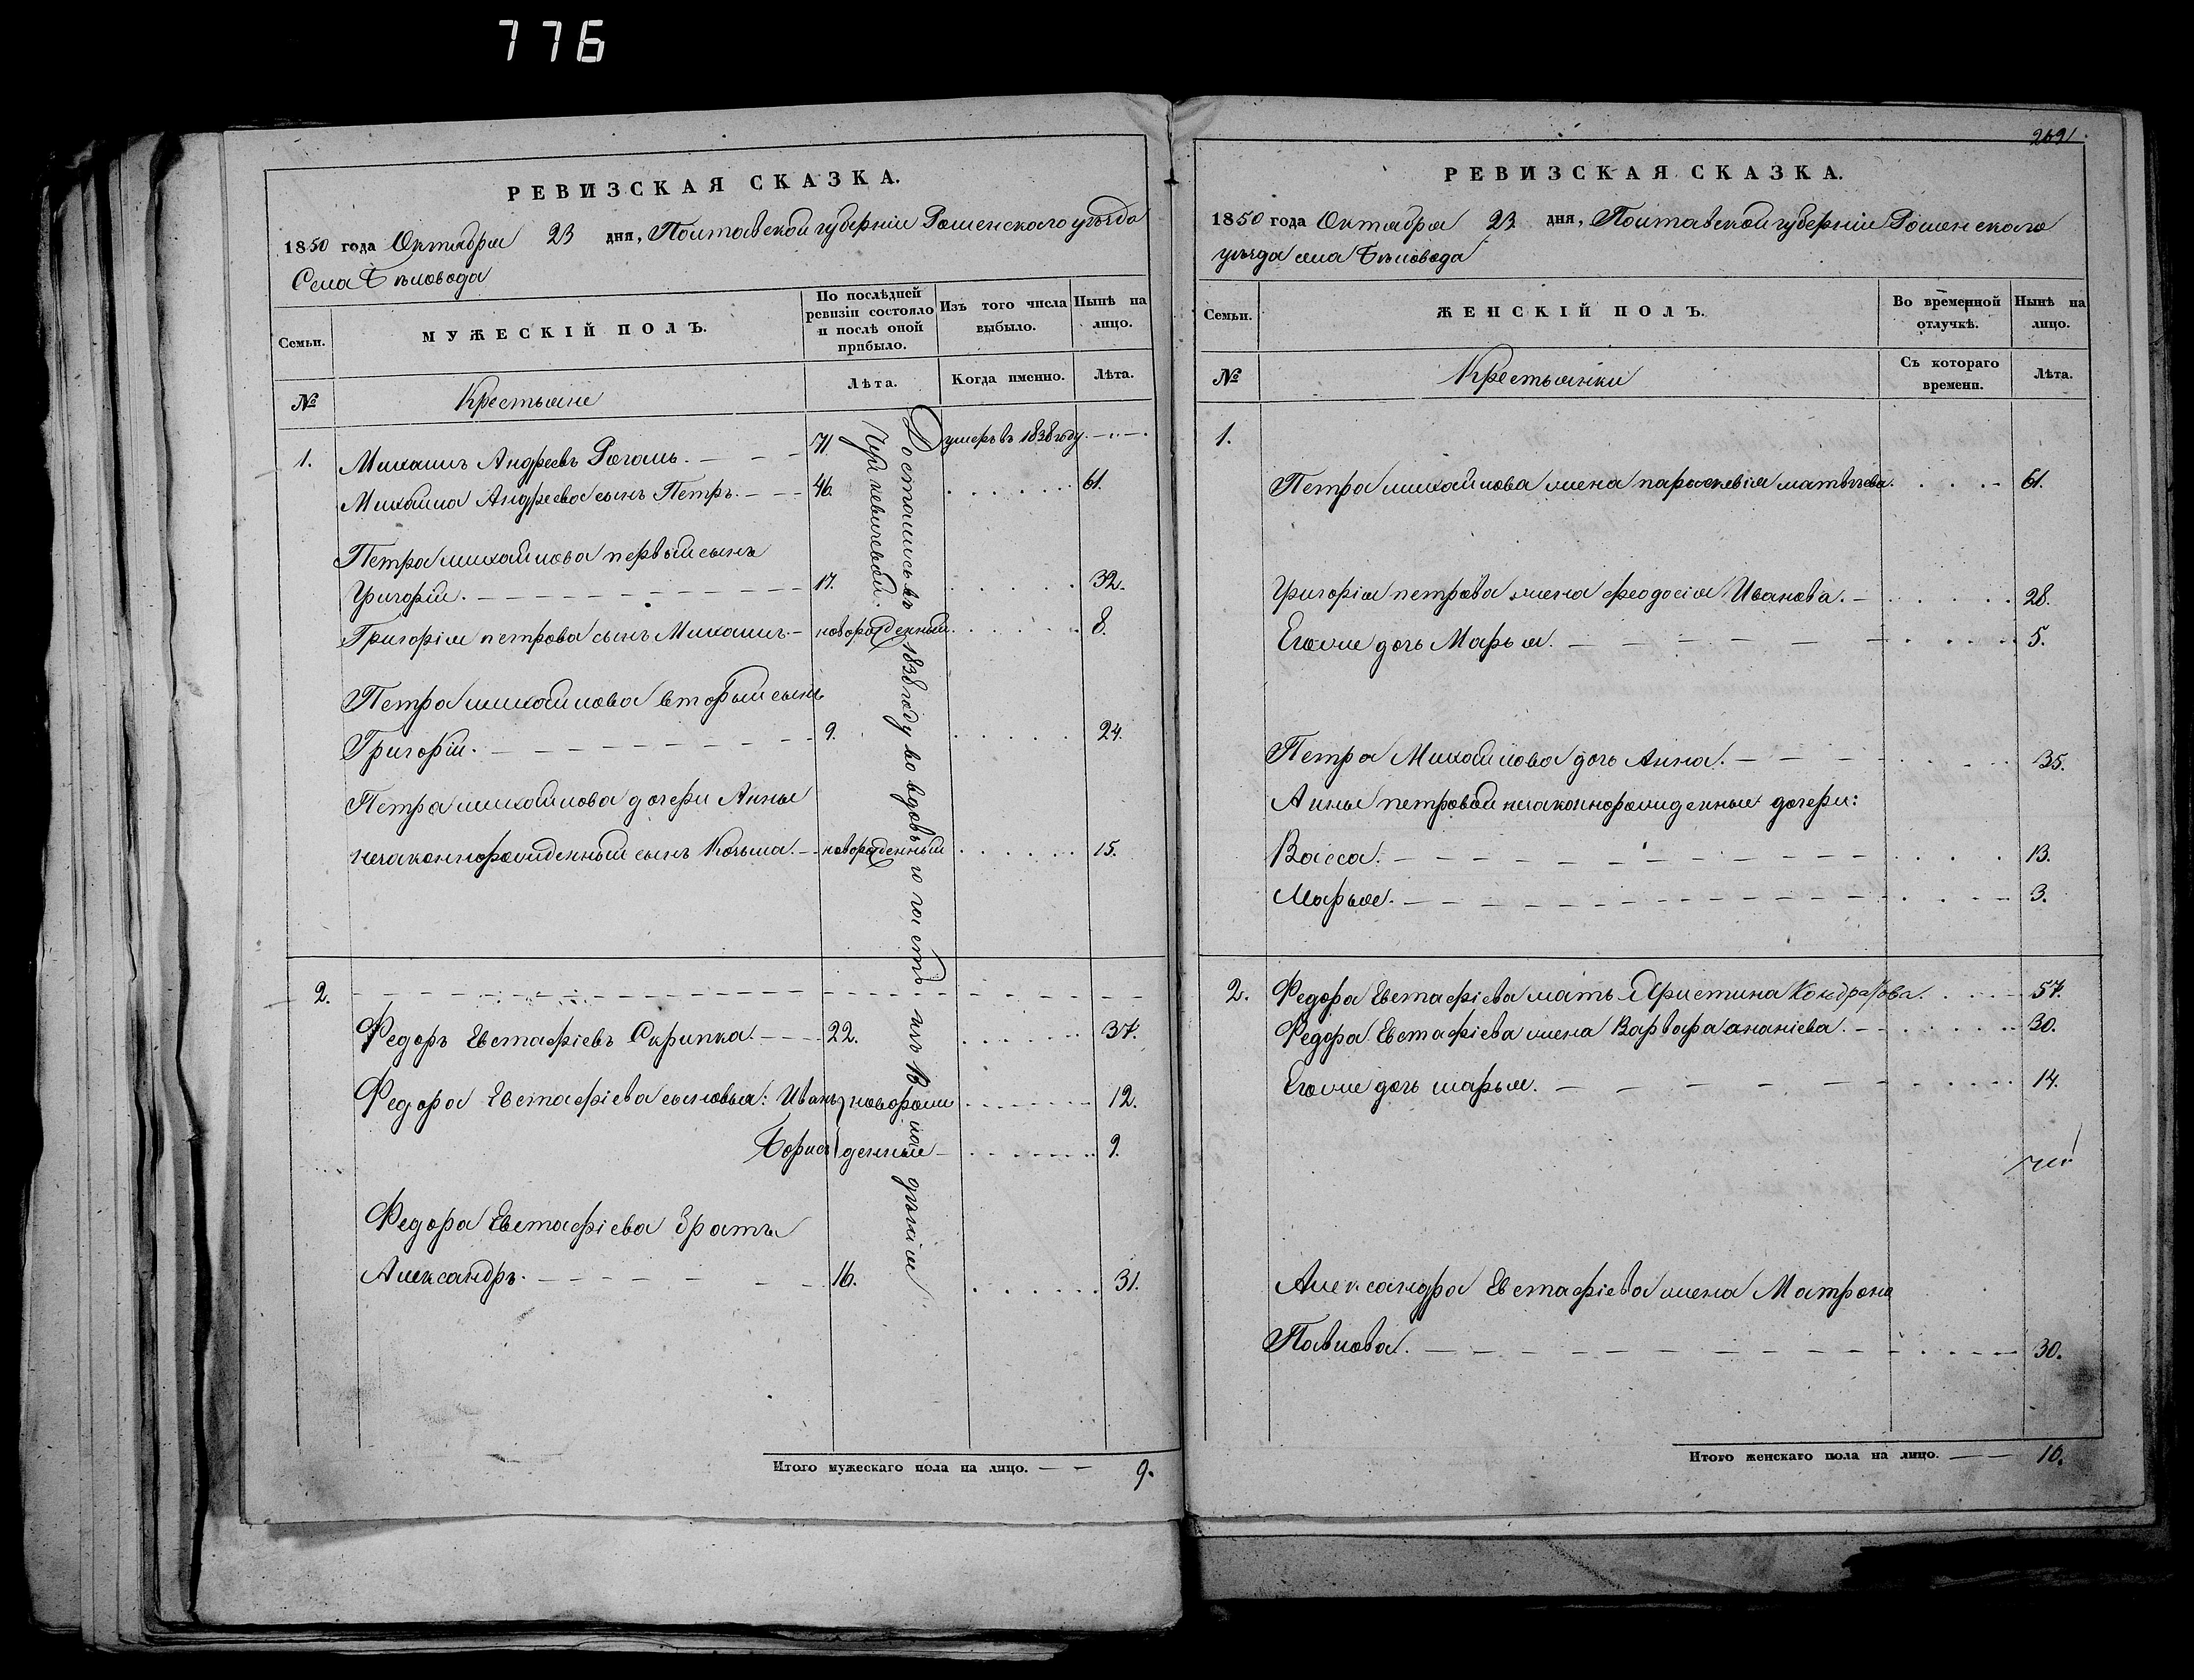 776
РЕВИЗСКАЯ СКАЗКА.
1850 года Октября 23 дня, Полтавской губерніи Роменского уѣзда
Села Бѣловода
Семьи.
МУЖЕСКІЙ ПОЛЪ.
По послѣдней ревизіи состояло и послѣ оной прибыло.
Изъ того числа выбыло.
Нынѣ на лицо.
№
Крестьяне
Лѣта.
Когда именно.
Лѣта.
1. Михаилъ Андреевъ Рогаль. 71. умеръ въ 1838 году.
Михаила Андреева сынъ Петръ. 46. 61.
Петра михайлова первый сынъ
Григорій. 17. 32.
Григорія петрова сынъ Михаилъ новорожденный. 8.
Петра михайлова вторый сынъ
Григорій. 9. 24.
Петра михайлова дочери Анны
незаконнорожденный сынъ Козьма. новорожденный 15.
Достались въ 1838 году во вдовью часть изъ дѣлія
2.
Федоръ Евстафіевъ Скрипка. 22. 37.
Федора Евстафіева сыновья: Иванъ новорож 12.
Борисъ денные 9.
Федора Евстафіева братъ
Александръ. 16. 31.
Итого мужескаго пола на лицо. 9.
РЕВИЗСКАЯ СКАЗКА.
1850 года Октября 23 дня, Полтавской губерніи Роменского
уѣзда села Бѣловода
Семьи.
ЖЕНСКІЙ ПОЛЪ.
Во временной отлучкѣ.
Нынѣ на лицо.
№
Крестьянки
Съ котораго времени.
Лѣта.
1.
Петра михайлова жена параскевія матвѣева. 61.
Григорія петрова жена феодосія Иванова. 28.
Его же дочь Марья. 5.
Петра Михайлова дочь Анна. 35.
Анны петровой незаконнорожденные дочери:
Васса. 13.
Марья. 3.
2. Федора Евстафіева мать Христина Кондратова. 57.
Федора Евстафіева жена Варвара ананіева. 30.
Его же дочь марья. 14.
Александра Евстафіева жена Матрона
Павлова. 30.
Итого женскаго пола на лицо. 10.